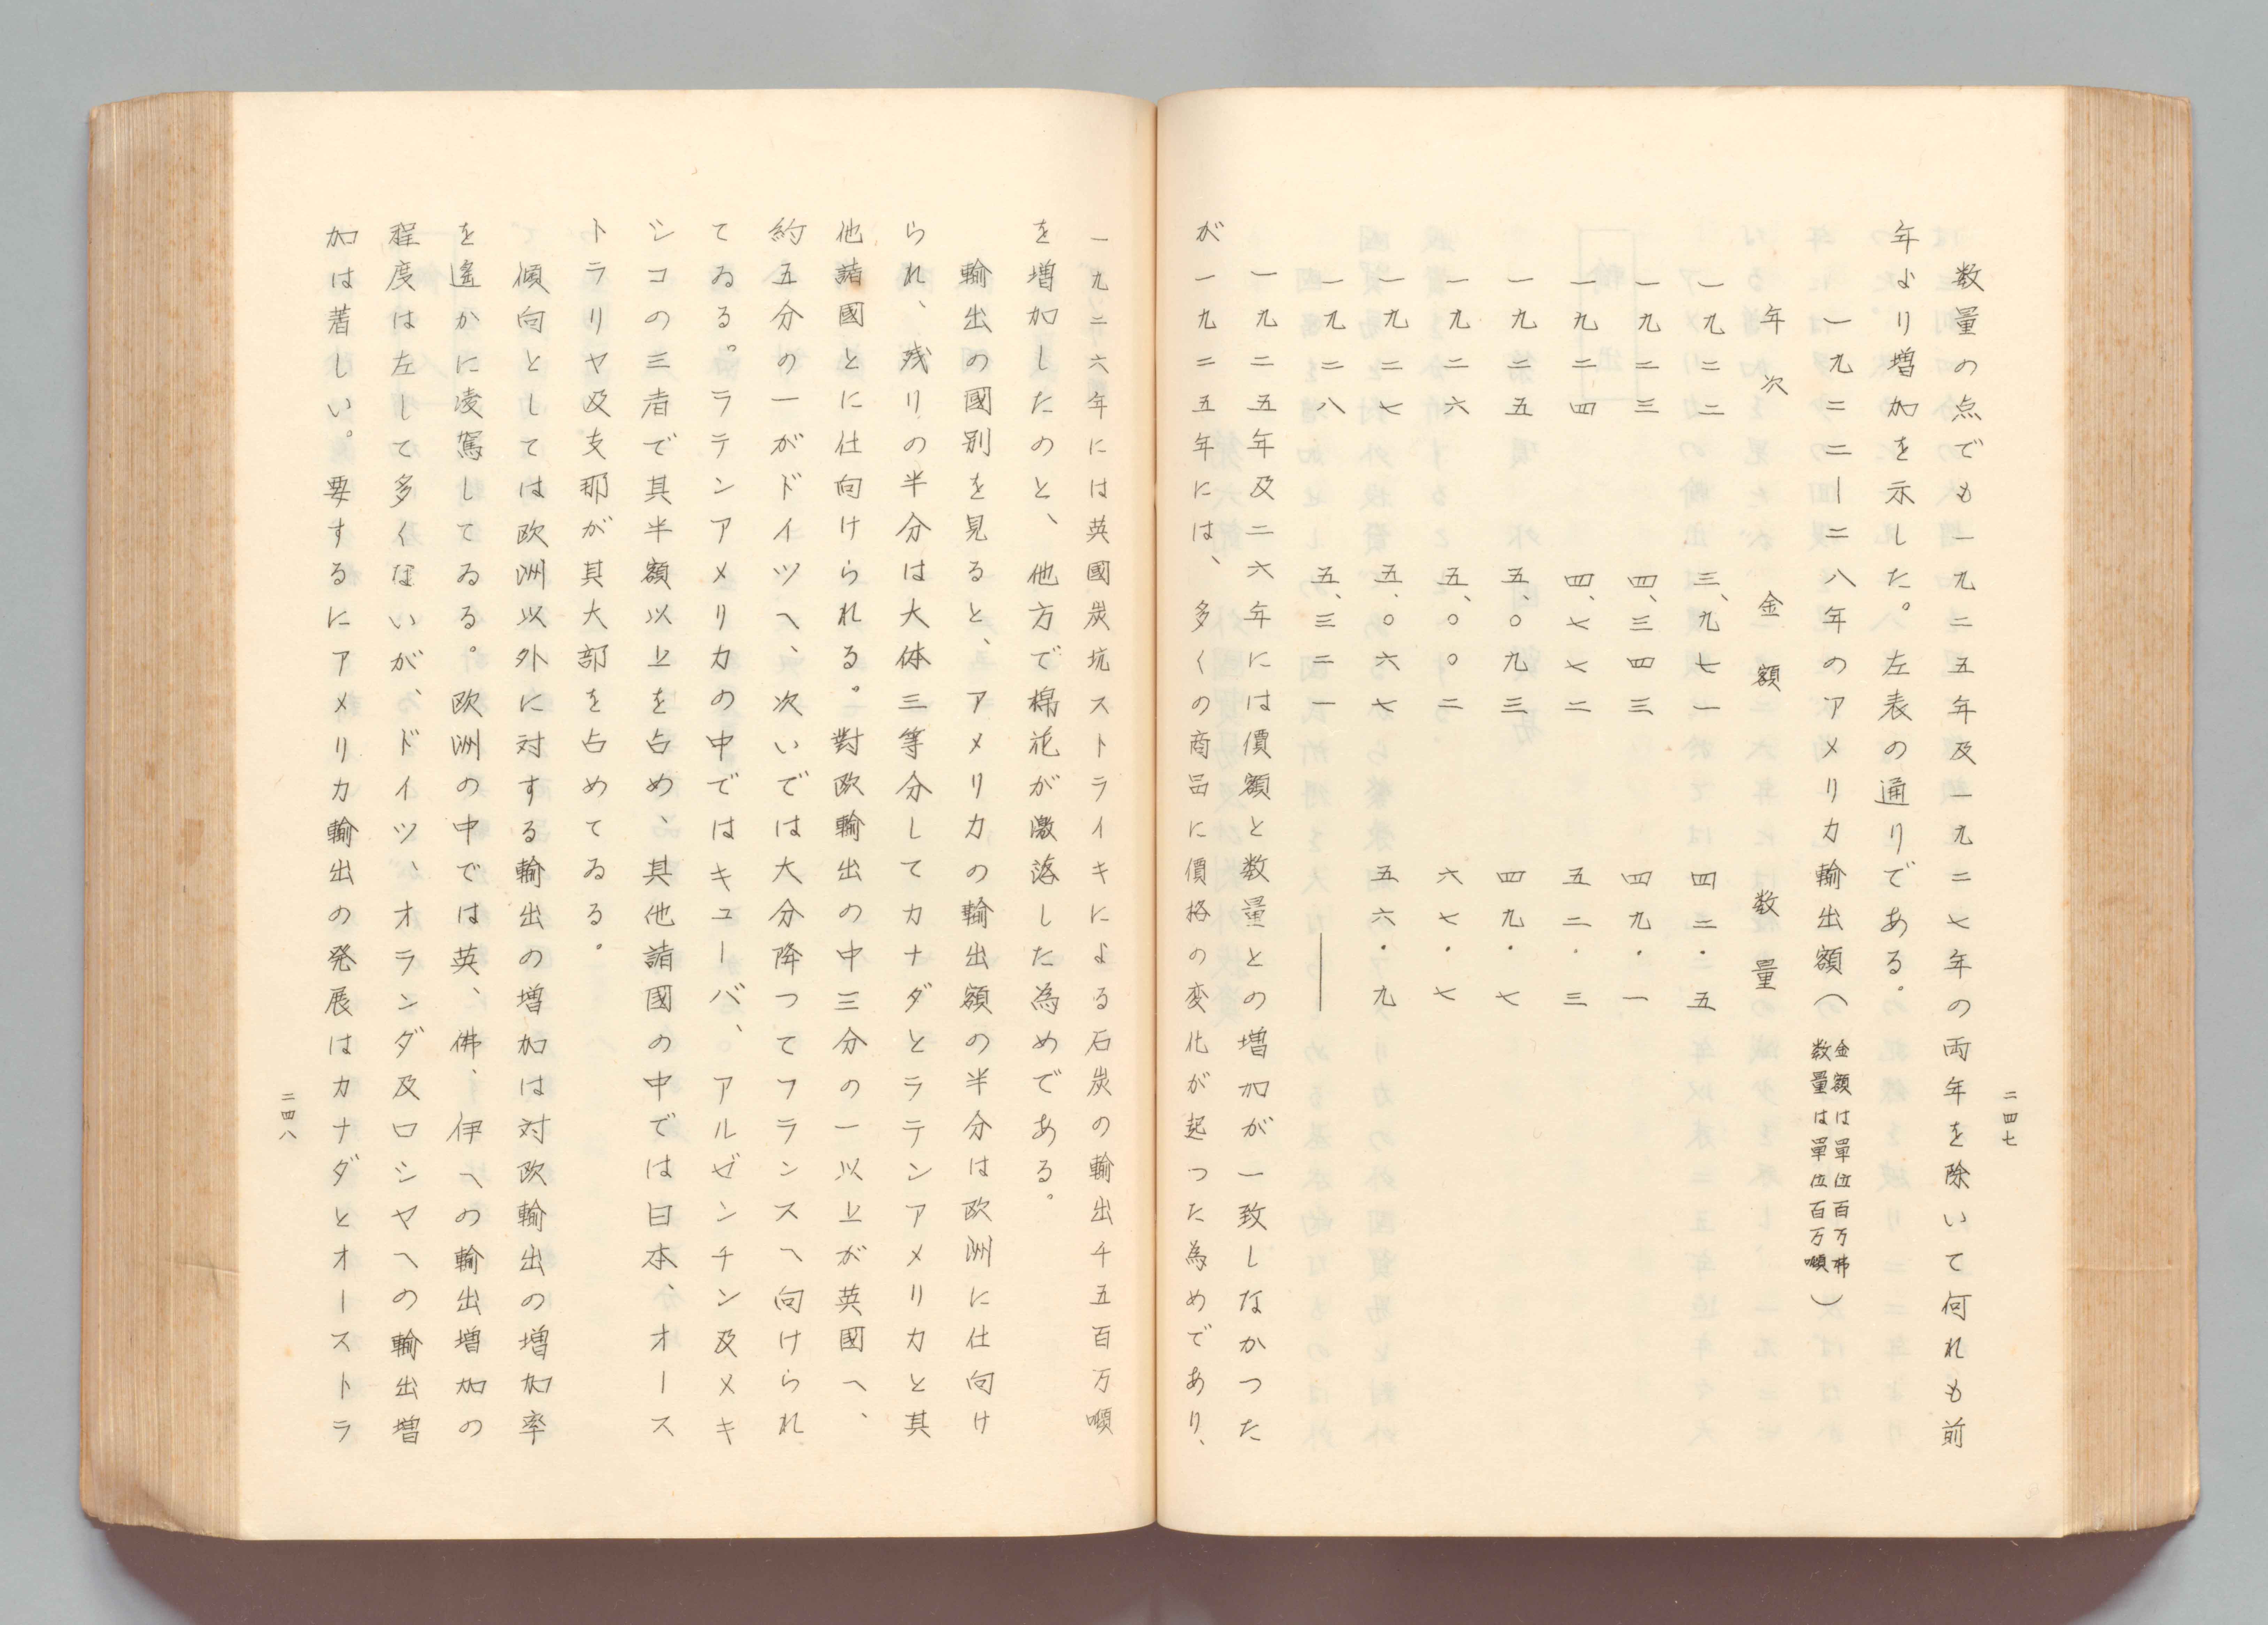 二四七
数量の点でも一九二五年及一九二七年の両年を除いて何れも前
年より増加を示した。左表の通りである。
一九二二ー二八年のアメリカ輸出額(金額は單位百万弗
数量は單位百万噸)
年次 金額 数量
一九二二 三、九七一 四二・五
一九二三 四、三四三 四九・一
一九二四 四、七七二 五二・三
一九二五 五、〇九三 四九・七
一九二六 五、〇〇二 六七・七
一九二七 五、〇六七 五六・九
一九二八 五、三二一 ――
一九二五年及二六年には價額と数量との増加が一致しなかつた
が一九二五年には、多くの商品に價格の変化が起つた為めであり、
一九二六年には英國炭坑ストライキによる石炭の輸出千五百万噸
を増加したのと、他方で棉花が激落した為めである。
輸出の國別を見ると、アメリカの輸出額の半分は欧洲に仕向け
られ、残りの半分は大体三等分してカナダとラテンアメリカと其
他諸國とに仕向けられる。對欧輸出の中三分の一以上が英國へ、
約五分の一がドイツへ、次いでは大分降つてフランスへ向けられ
てゐる。ラテンアメリカの中ではキューバ、アルゼンチン及メキ
シコの三者で其半額以上を占め、其他諸國の中では日本、オース
トラリヤ及支那が其大部を占めてゐる。
傾向としては欧洲以外に対する輸出の増加は対欧輸出の増加率
を遙かに凌駕してゐる。欧洲の中では英、佛、伊への輸出増加の
程度は左して多くないが、ドイツ、オランダ及ロシヤへの輸出増
加は著しい。要するにアメリカ輸出の発展はカナダとオーストラ
二四八